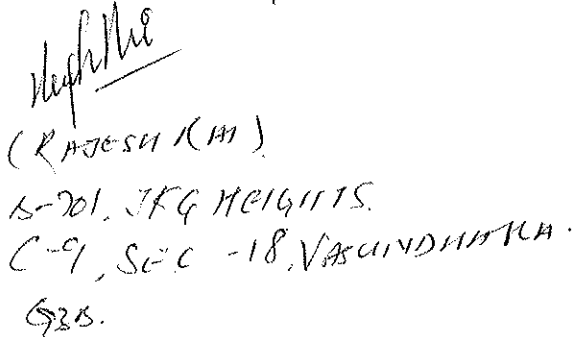 (RAJESH RAI)
B-701, JKG HEIGHTS.
C-9, SEC-18, VASUNDHARA.
GZB.